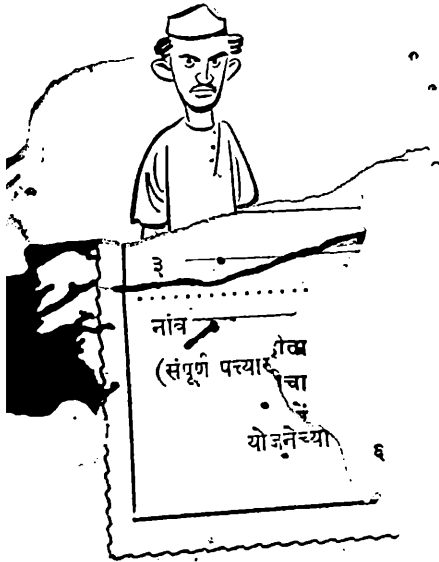 ३
नांव
(संपूर्ण पत्त्या
चा
योजनेच्या
६